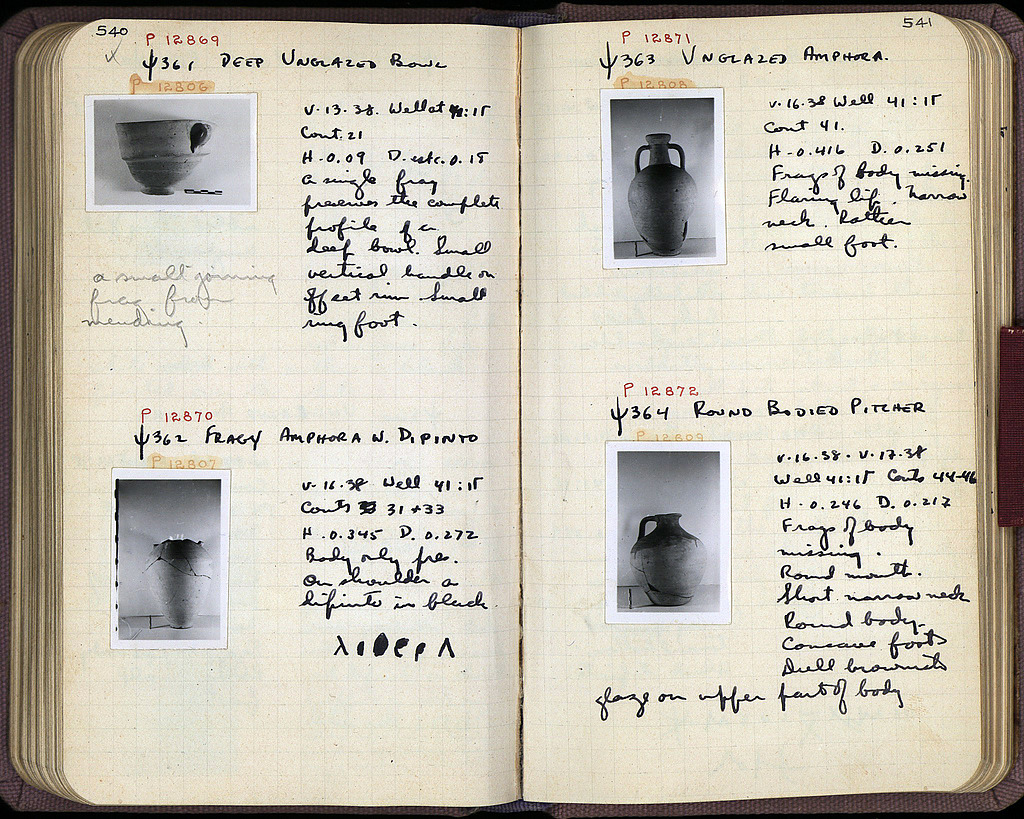 540
P 12869
Ψ361 DEEP UNGLAZED BOWL
P 12806
V.13.38. Well at 41:15
Cont. 21
H-0.09 D. est. 0.15
A single frag
preserves the complete
profile of a
deep bowl. Small
vertical handle on
offset rim. Small
ring foot.
a small joining
frag from
mending.
P 12870
Ψ362 FRAGY AMPHORA W. DIPINTO
P 12807
V.16.38 Well 41:15
Conts 31+33
H.0.345 D. 0.272
Body only pres.
On shoulder a
dipinto in black.
541
P 12871
Ψ363 UNGLAZED AMPHORA.
P 12808
V.16.38 Well 41:15
Cont 41.
H-0.416 D. 0.251
Frags of body missing.
Flaring lip. Narrow
neck. Rather
small foot.
P 12872
Ψ364 ROUND BODIED PITCHER
P 12809
V.16.38 - V.17.38
Well 41:15 Conts 44-46
H-0.246 D. 0.217
Frags of body
missing.
Round mouth.
Short narrow neck
Round body.
Concave foot
Dull brownish
glaze on upper part of body